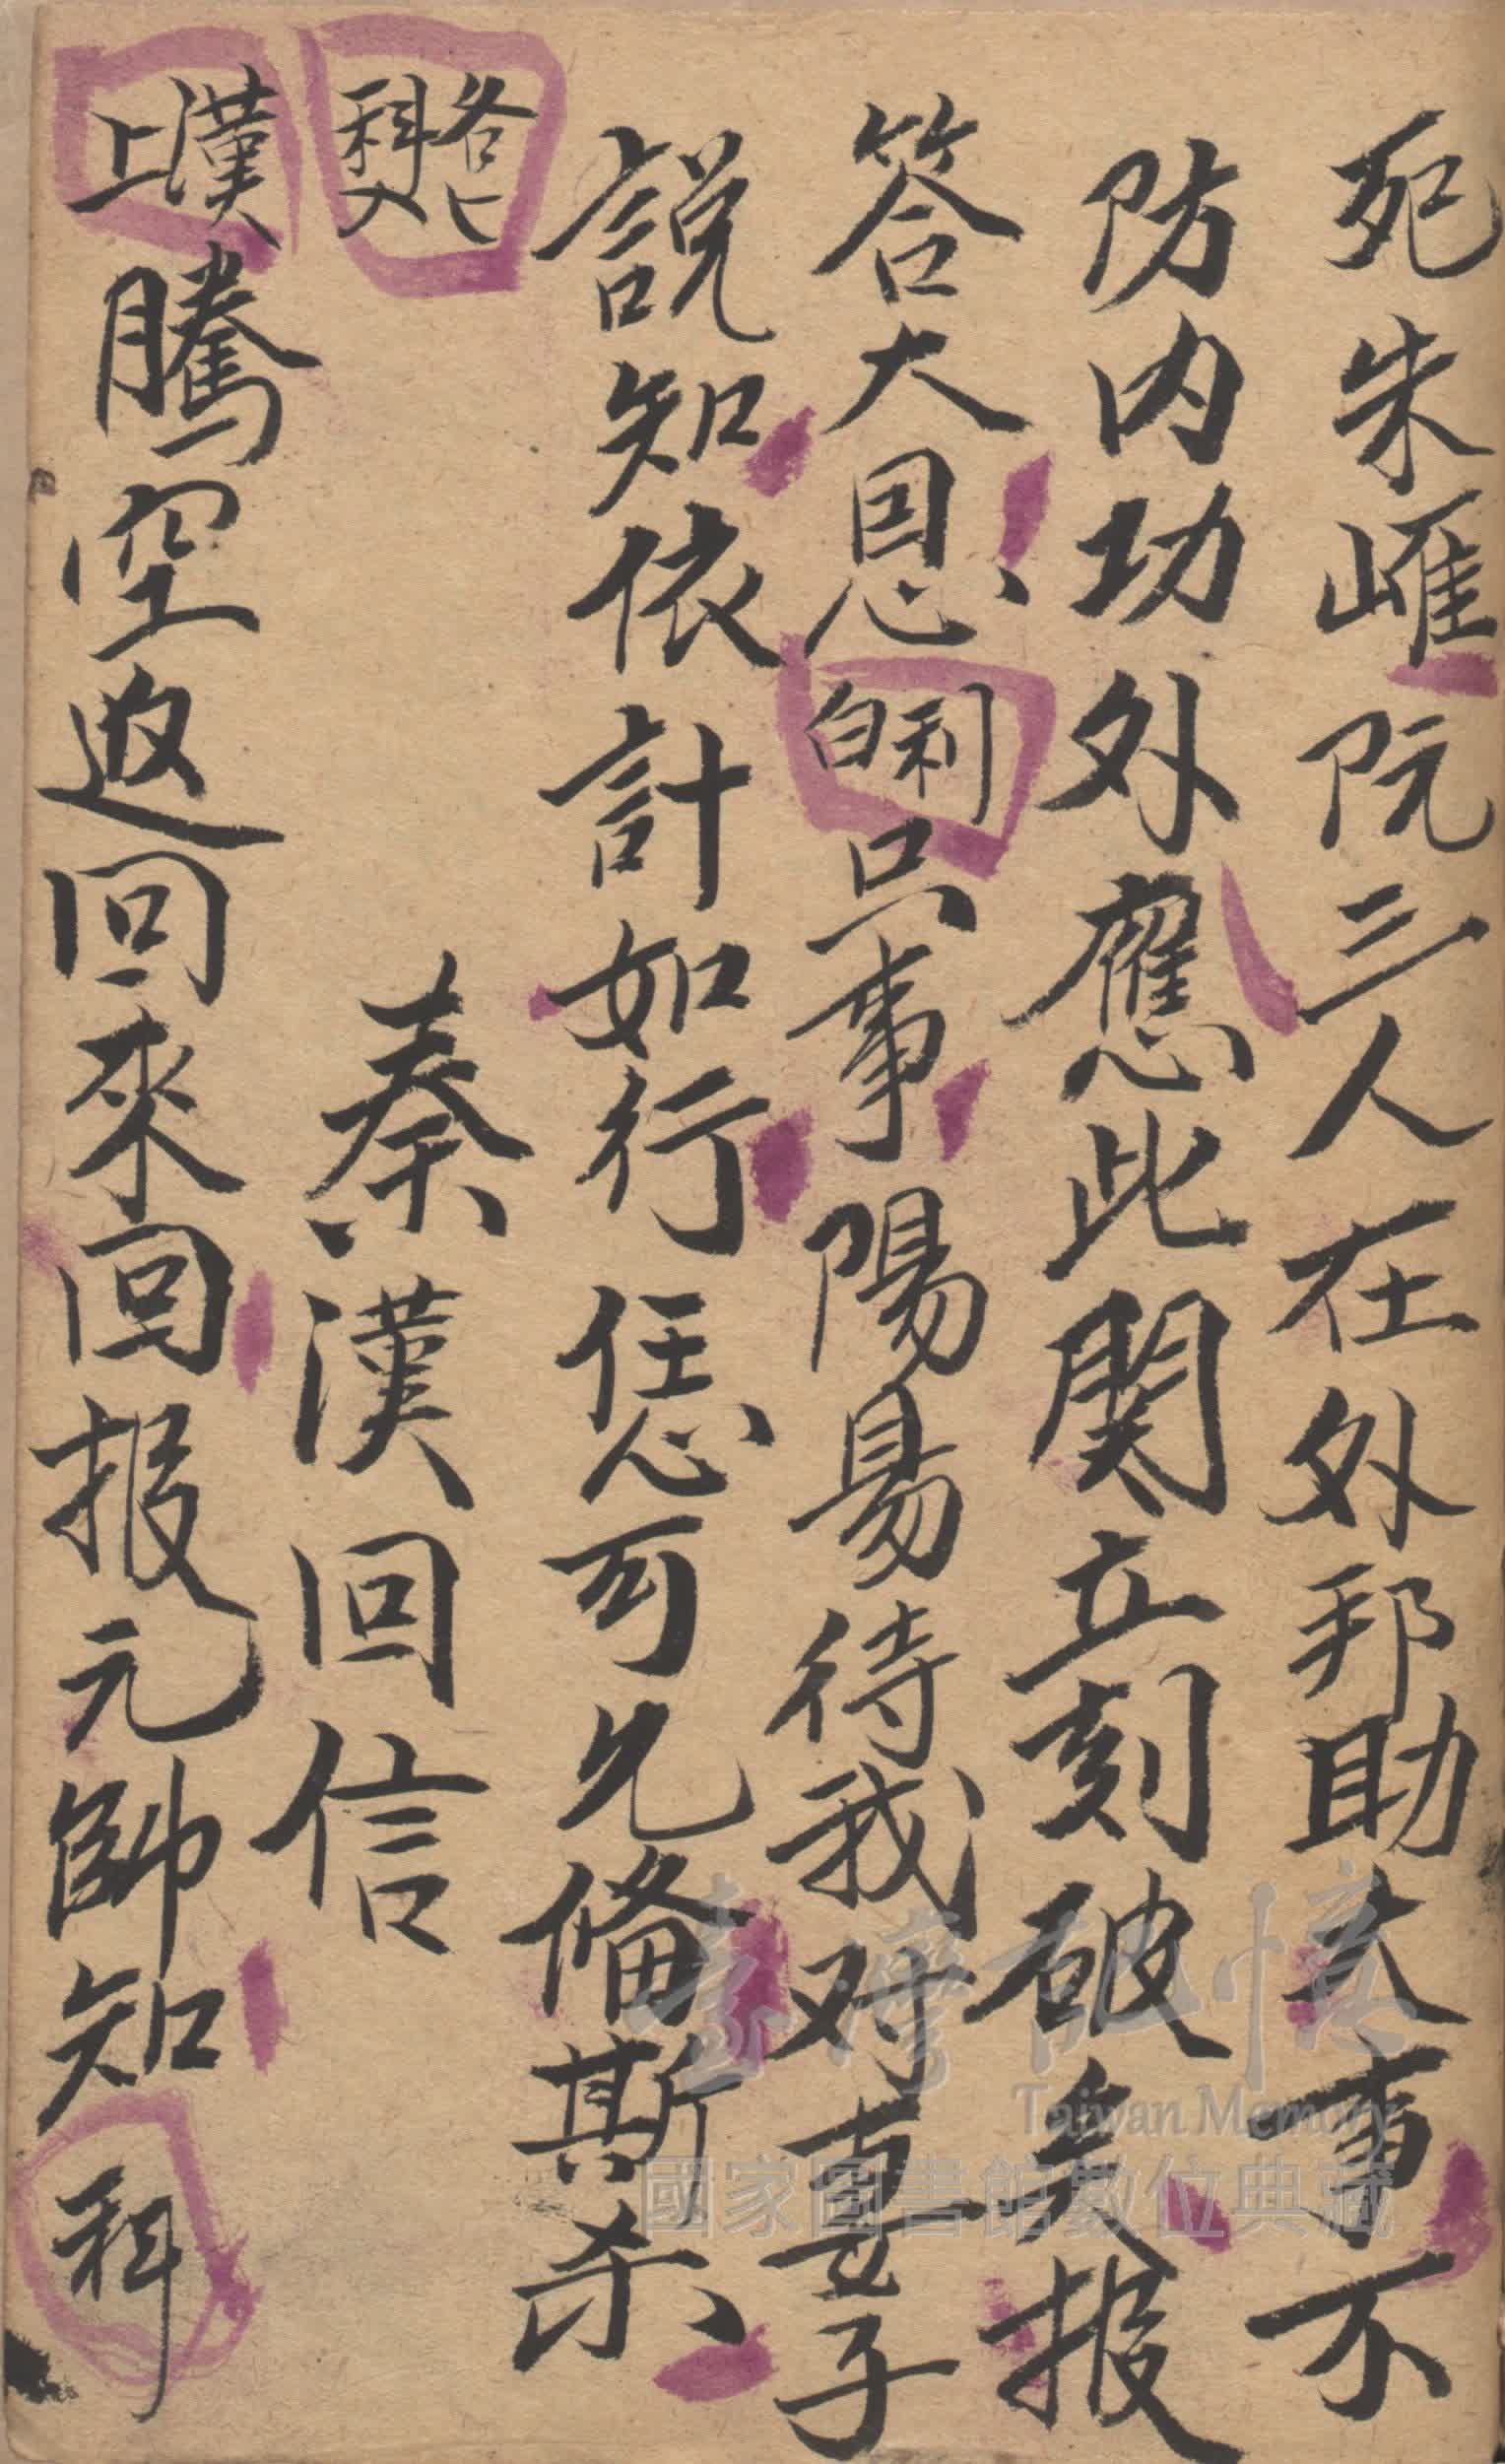 死朱崕阮三人在外邦助大事不
防内功外應此関立刻破矣报
答大恩白俐只事陽易待我对妻子
說知依計如行恁可先備斯杀
各匕科入
秦漢回信
漢上騰空返回來回报元帥知科
臺灣記憶
Taiwan Memory
國家圖書館數位典藏